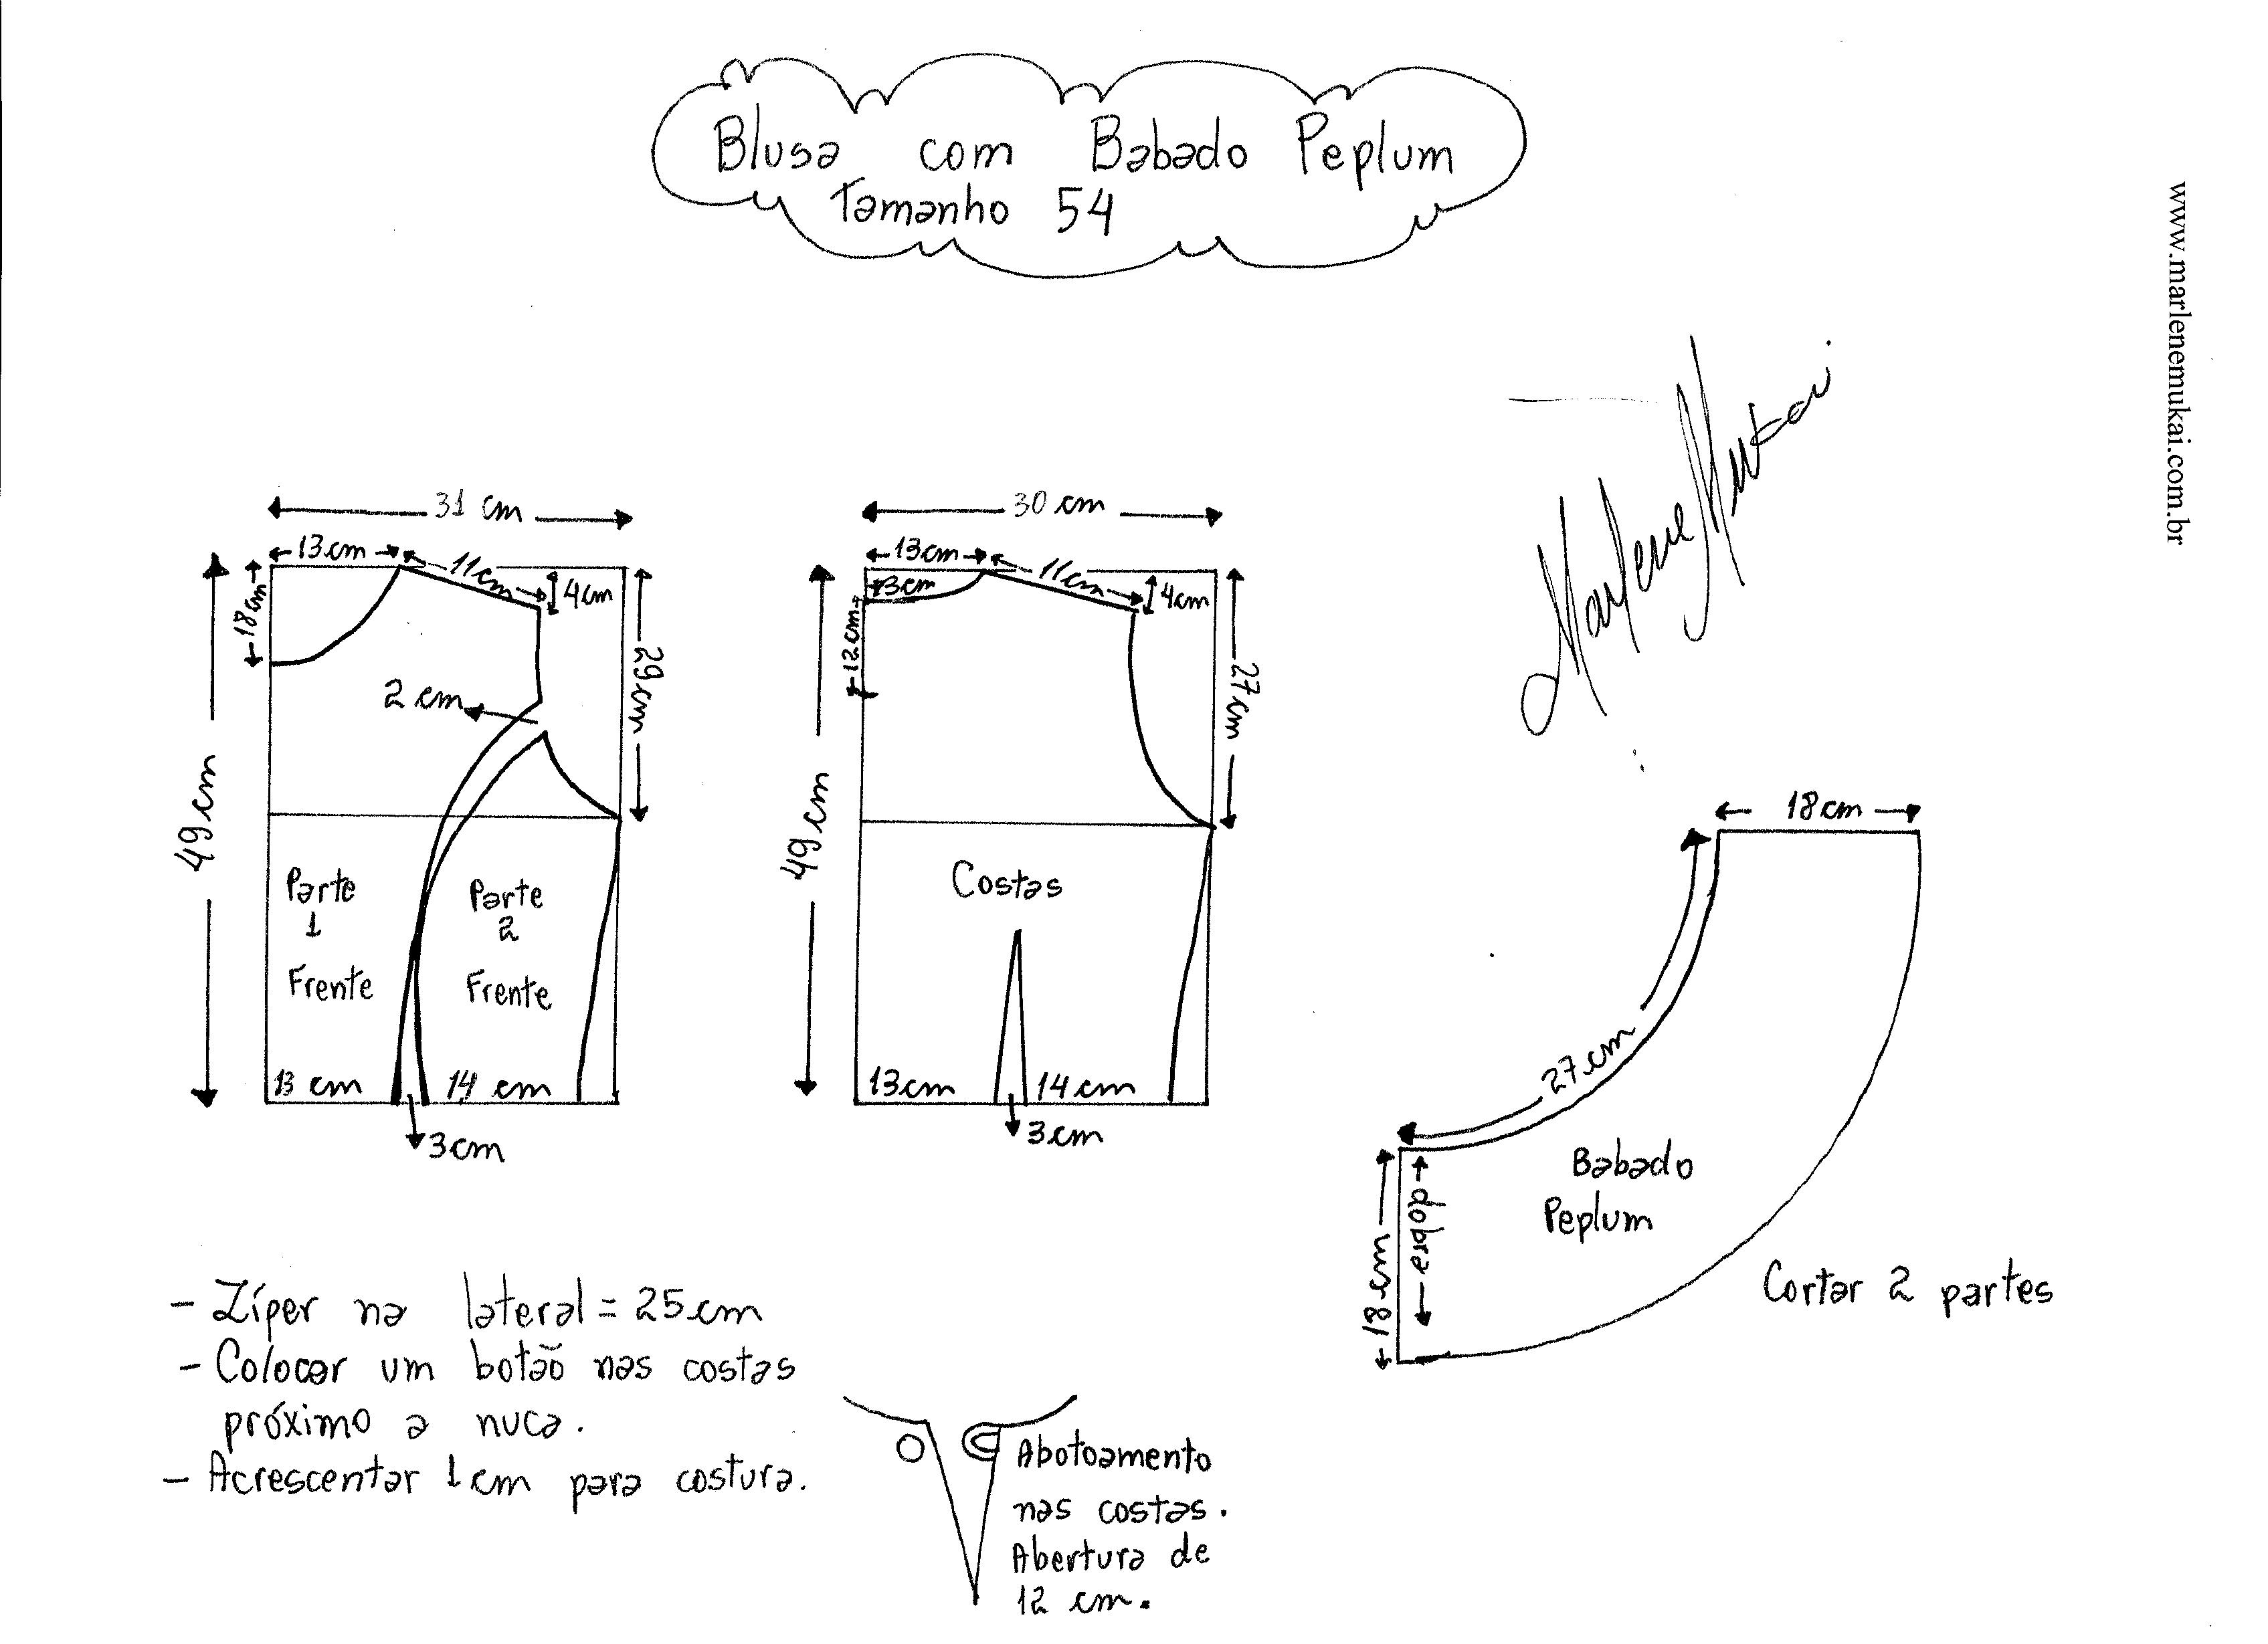 Blusa com Babado Peplum
Tamanho 54
www.marlenemukai.com.br
Marlene Mukai
31 cm
13cm
11cm
4cm
18cm
29cm
2 cm
49cm
Parte
1
Frente
Parte
2
Frente
13 cm
14 cm
3cm
30 cm
13cm
11cm
4cm
13cm
12cm
27cm
49cm
Costas
13cm
14cm
3cm
18cm
27cm
dobra
18cm
Babado
Peplum
Cortar 2 partes
- Zíper na lateral = 25cm
- Colocar um botão nas costas
próximo a nuca.
- Acrescentar 1cm para costura.
Abotoamento
nas costas.
Abertura de
12 cm.